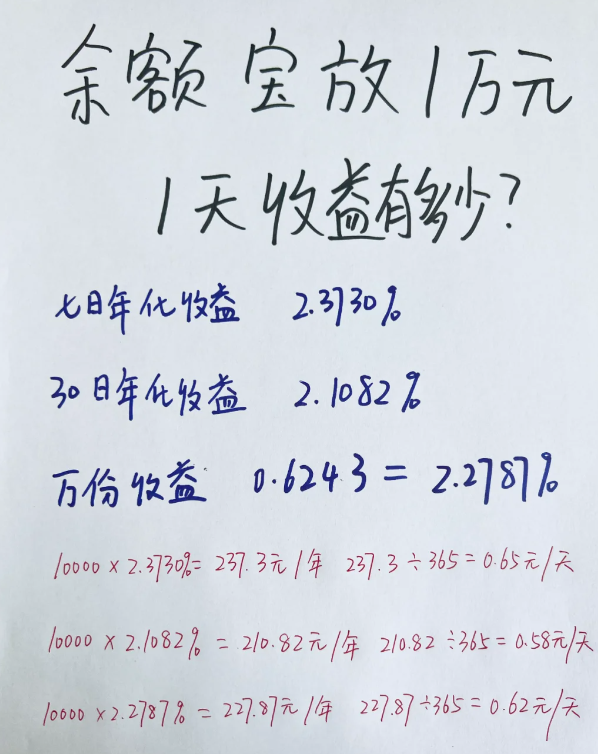 余额宝放1万元
1天收益有多少?
七日年化收益 2.3730%
30日年化收益 2.1082%
万份收益 0.6243 = 2.2787%
10000×2.3730%=237.3元/年 237.3÷365=0.65元/天
10000×2.1082%=210.82元/年 210.82÷365=0.58元/天
10000×2.2787%=227.87元/年 227.87÷365=0.62元/天